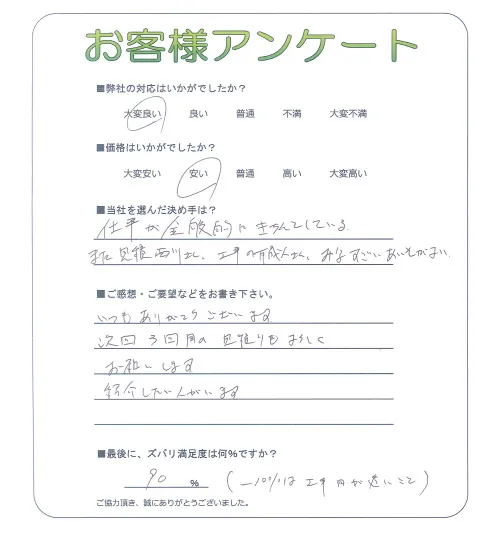 お客様アンケート
■弊社の対応はいかがでしたか？
大変良い 良い 普通 不満 大変不満
■価格はいかがでしたか？
大変安い 安い 普通 高い 大変高い
■当社を選んだ決め手は？
仕事が全般的にきちんとしている。
また見積 工事の 、みなすごいあいそがよい
■ご感想・ご要望などをお書き下さい。
いつもありがとうございます
次回3回目の見積りもよろしく
お願いします
紹介したい人がいます
■最後に、ズバリ満足度は何%ですか？
90 % (-10%は工事 が遠いこと)
ご協力頂き、誠にありがとうございました。